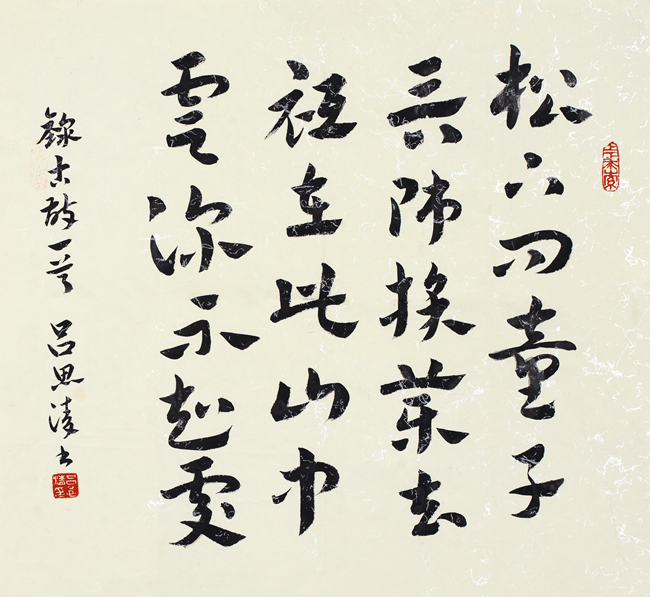 松下問童子
言師採藥去
祇在此山中
雲深不知處
錄古詩一首 呂思 書